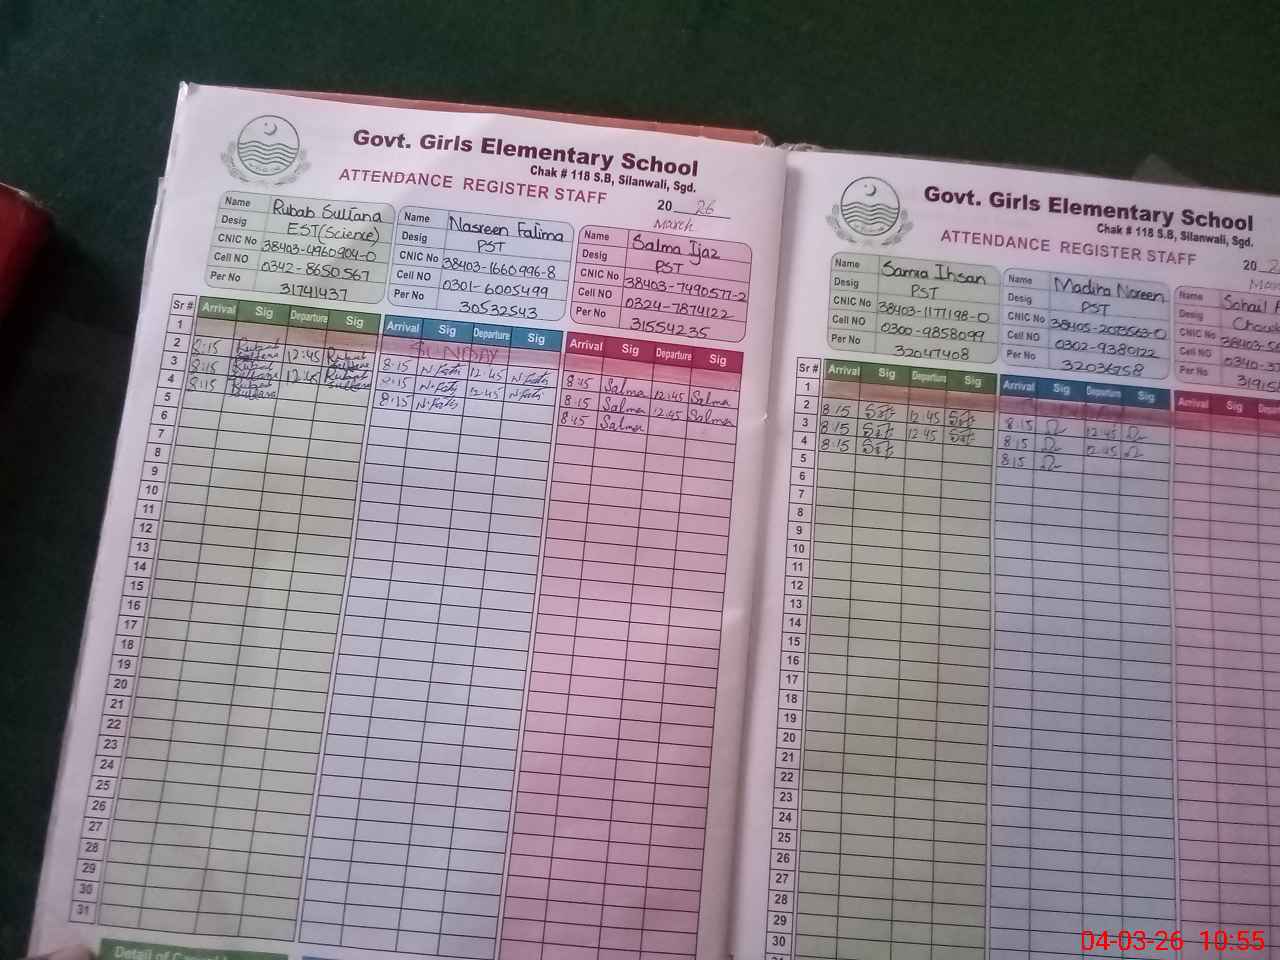 Govt. Girls Elementary School
Chak # 118 S.B, Silanwali, Sgd.
ATTENDANCE REGISTER STAFF
20 26
March
Name Rubab Sultana
Desig EST(Science)
CNIC No 38403-0960904-0
Cell NO 0342-8650567
Per No 31741437
Name Nasreen Fatima
Desig PST
CNIC No 38403-1660996-8
Cell NO 0301-6005499
Per No 30532543
Name Salma Ijaz
Desig PST
CNIC No 38403-7490577-2
Cell NO 0324-7874122
Per No 31554235
Sr # Arrival Sig Departure Sig Arrival Sig Departure Sig Arrival Sig Departure Sig
1 SUNDAY
2 8:15 Rubab Sultana 12:45 Rubab Sultana 8:15 N.Fatima 12:45 N.Fatima 8:15 Salma 12:45 Salma
3 8:15 Rubab Sultana 12:45 Rubab Sultana 8:15 N.Fatima 12:45 N.Fatima 8:15 Salma 12:45 Salma
4 8:15 Rubab Sultana 8:15 N.Fatima 8:15 Salma
5
6
7
8
9
10
11
12
13
14
15
16
17
18
19
20
21
22
23
24
25
26
27
28
29
30
31
Detail of
Govt. Girls Elementary School
Chak # 118 S.B, Silanwali, Sgd.
ATTENDANCE REGISTER STAFF
20
Name Samra Ihsan
Desig PST
CNIC No 38403-1177198-0
Cell NO 0300-9858099
Per No 32047408
Name Madiha Noreen
Desig PST
CNIC No 38405-2073563-0
Cell NO 0302-9380122
Per No 32036758
Name Sohail
Desig
CNIC No 38403-
Cell NO 0340-
Per No
Sr # Arrival Sig Departure Sig Arrival Sig Departure Sig Arrival Sig Departure
1
2 8:15 12:45 8:15 12:45
3 8:15 12:45 8:15 12:45
4 8:15 8:15
5
6
7
8
9
10
11
12
13
14
15
16
17
18
19
20
21
22
23
24
25
26
27
28
29
30
04-03-26 10:55